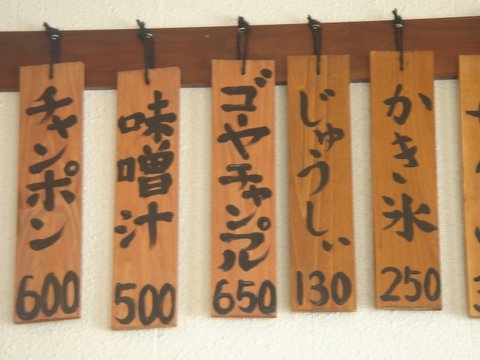 チャンポン
600
味噌汁
500
ゴーヤチャンプル
650
じゅうしぃ
130
かき氷
250